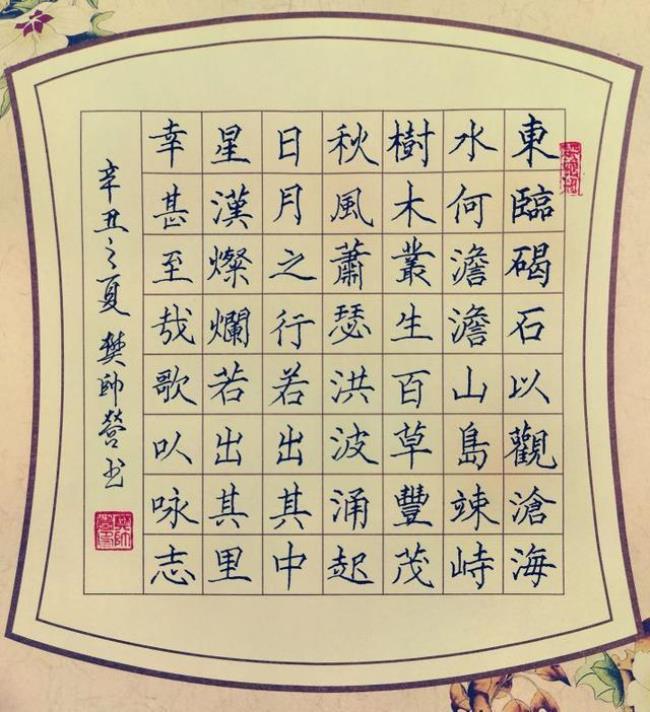 東臨碣石以觀滄海
水何澹澹山島竦峙
樹木叢生百草豐茂
秋風蕭瑟洪波涌起
日月之行若出其中
星漢燦爛若出其里
幸甚至哉歌以咏志
辛丑之夏樊帥營书